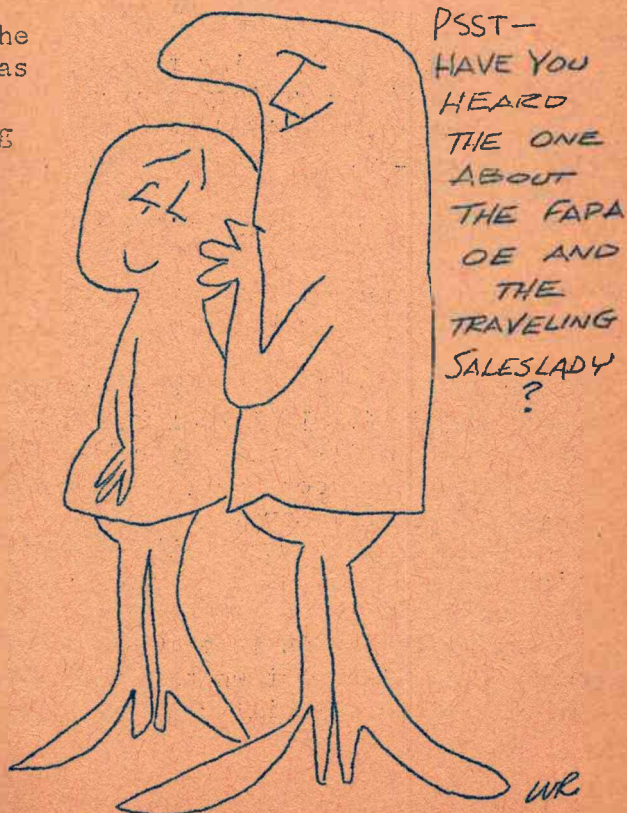 he
as
g
PSST—
HAVE YOU
HEARD
THE ONE
ABOUT
THE FAPA
OE AND
THE
TRAVELING
SALESLADY
?
WR